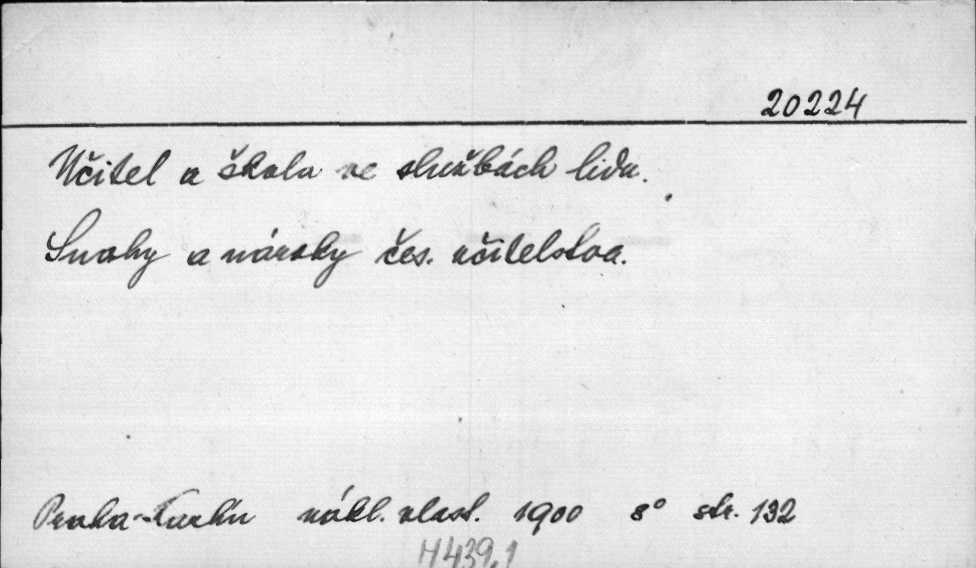 20224
Učitel a škola ve službách lidu.
Snahy a nároky čes. učitelstva.
Praha-Karlín nákl. vlast. 1900 8° str. 132
H439,1